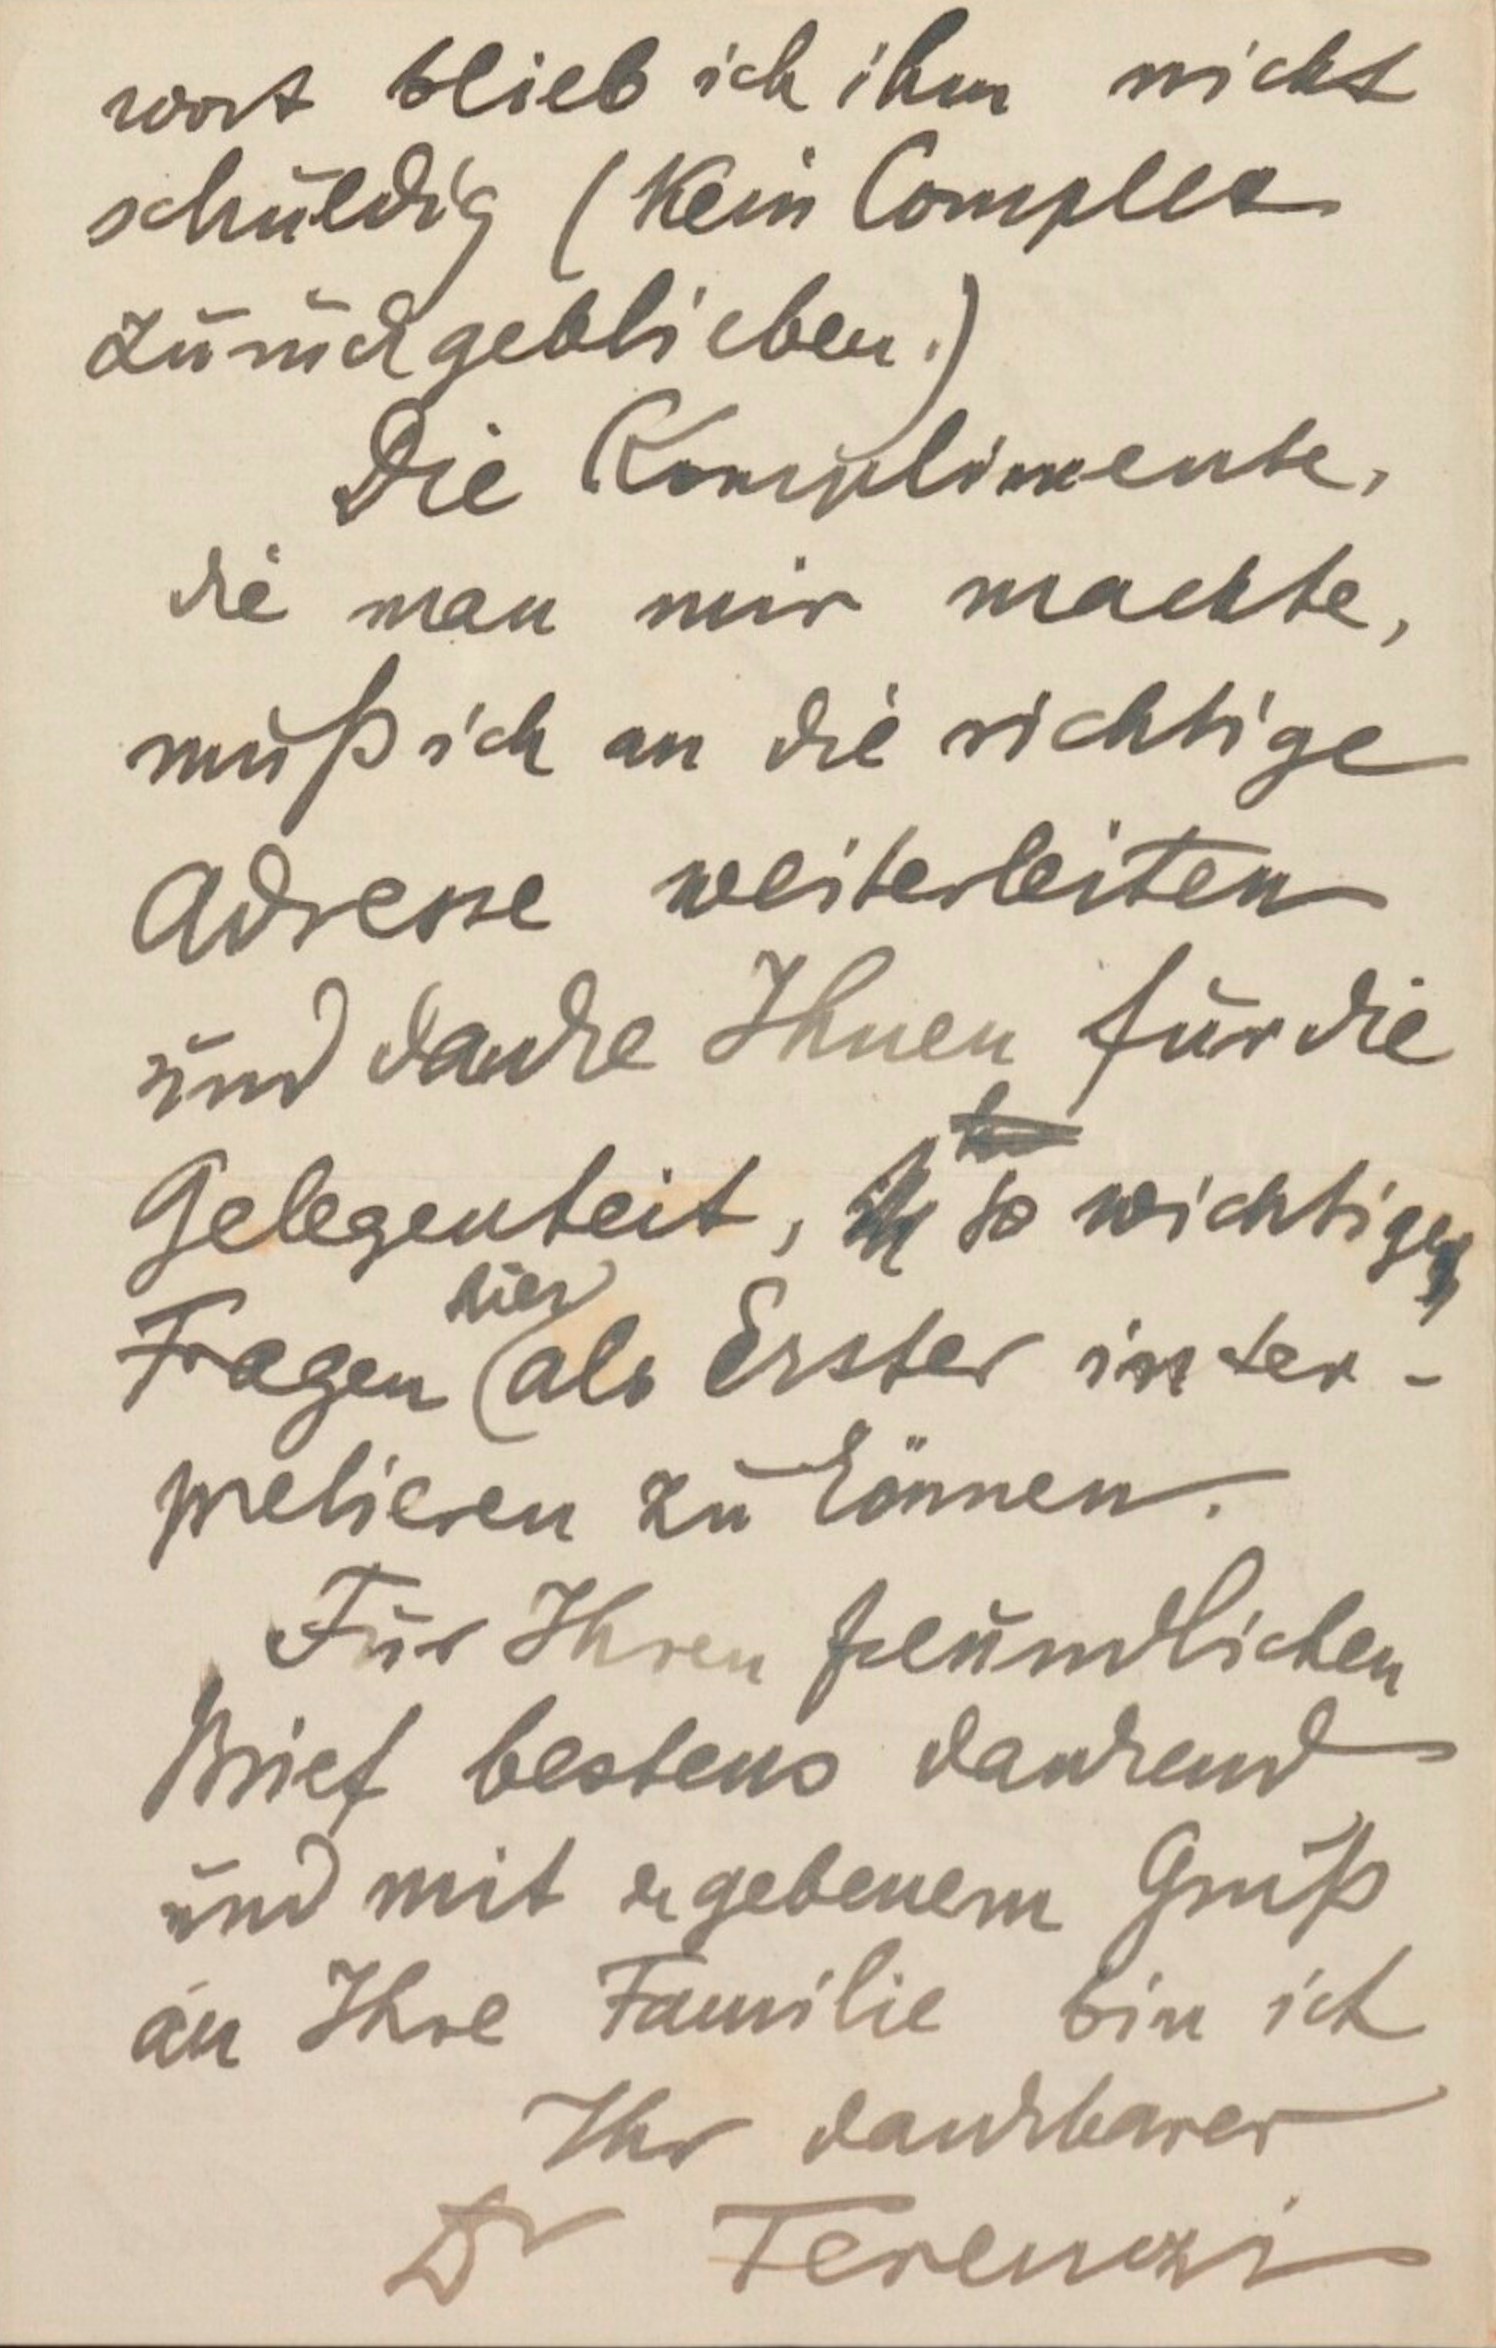 wort blieb ich ihm nicht
schuldig (Kein Complex
zurückgeblieben.)
Die Komplimente,
die man mir machte,
muß ich an die richtige
Adresse weiterleiten
und danke Ihnen für die
Gelegenheit, so wichtige
hier
Fragen (als Erster inter-
pretieren zu können.
Für Ihren freundlichen
Brief bestens dankend
und mit ergebenem Gruß
an Ihre Familie bin ich
Ihr dankbarer
Dr Ferenczi